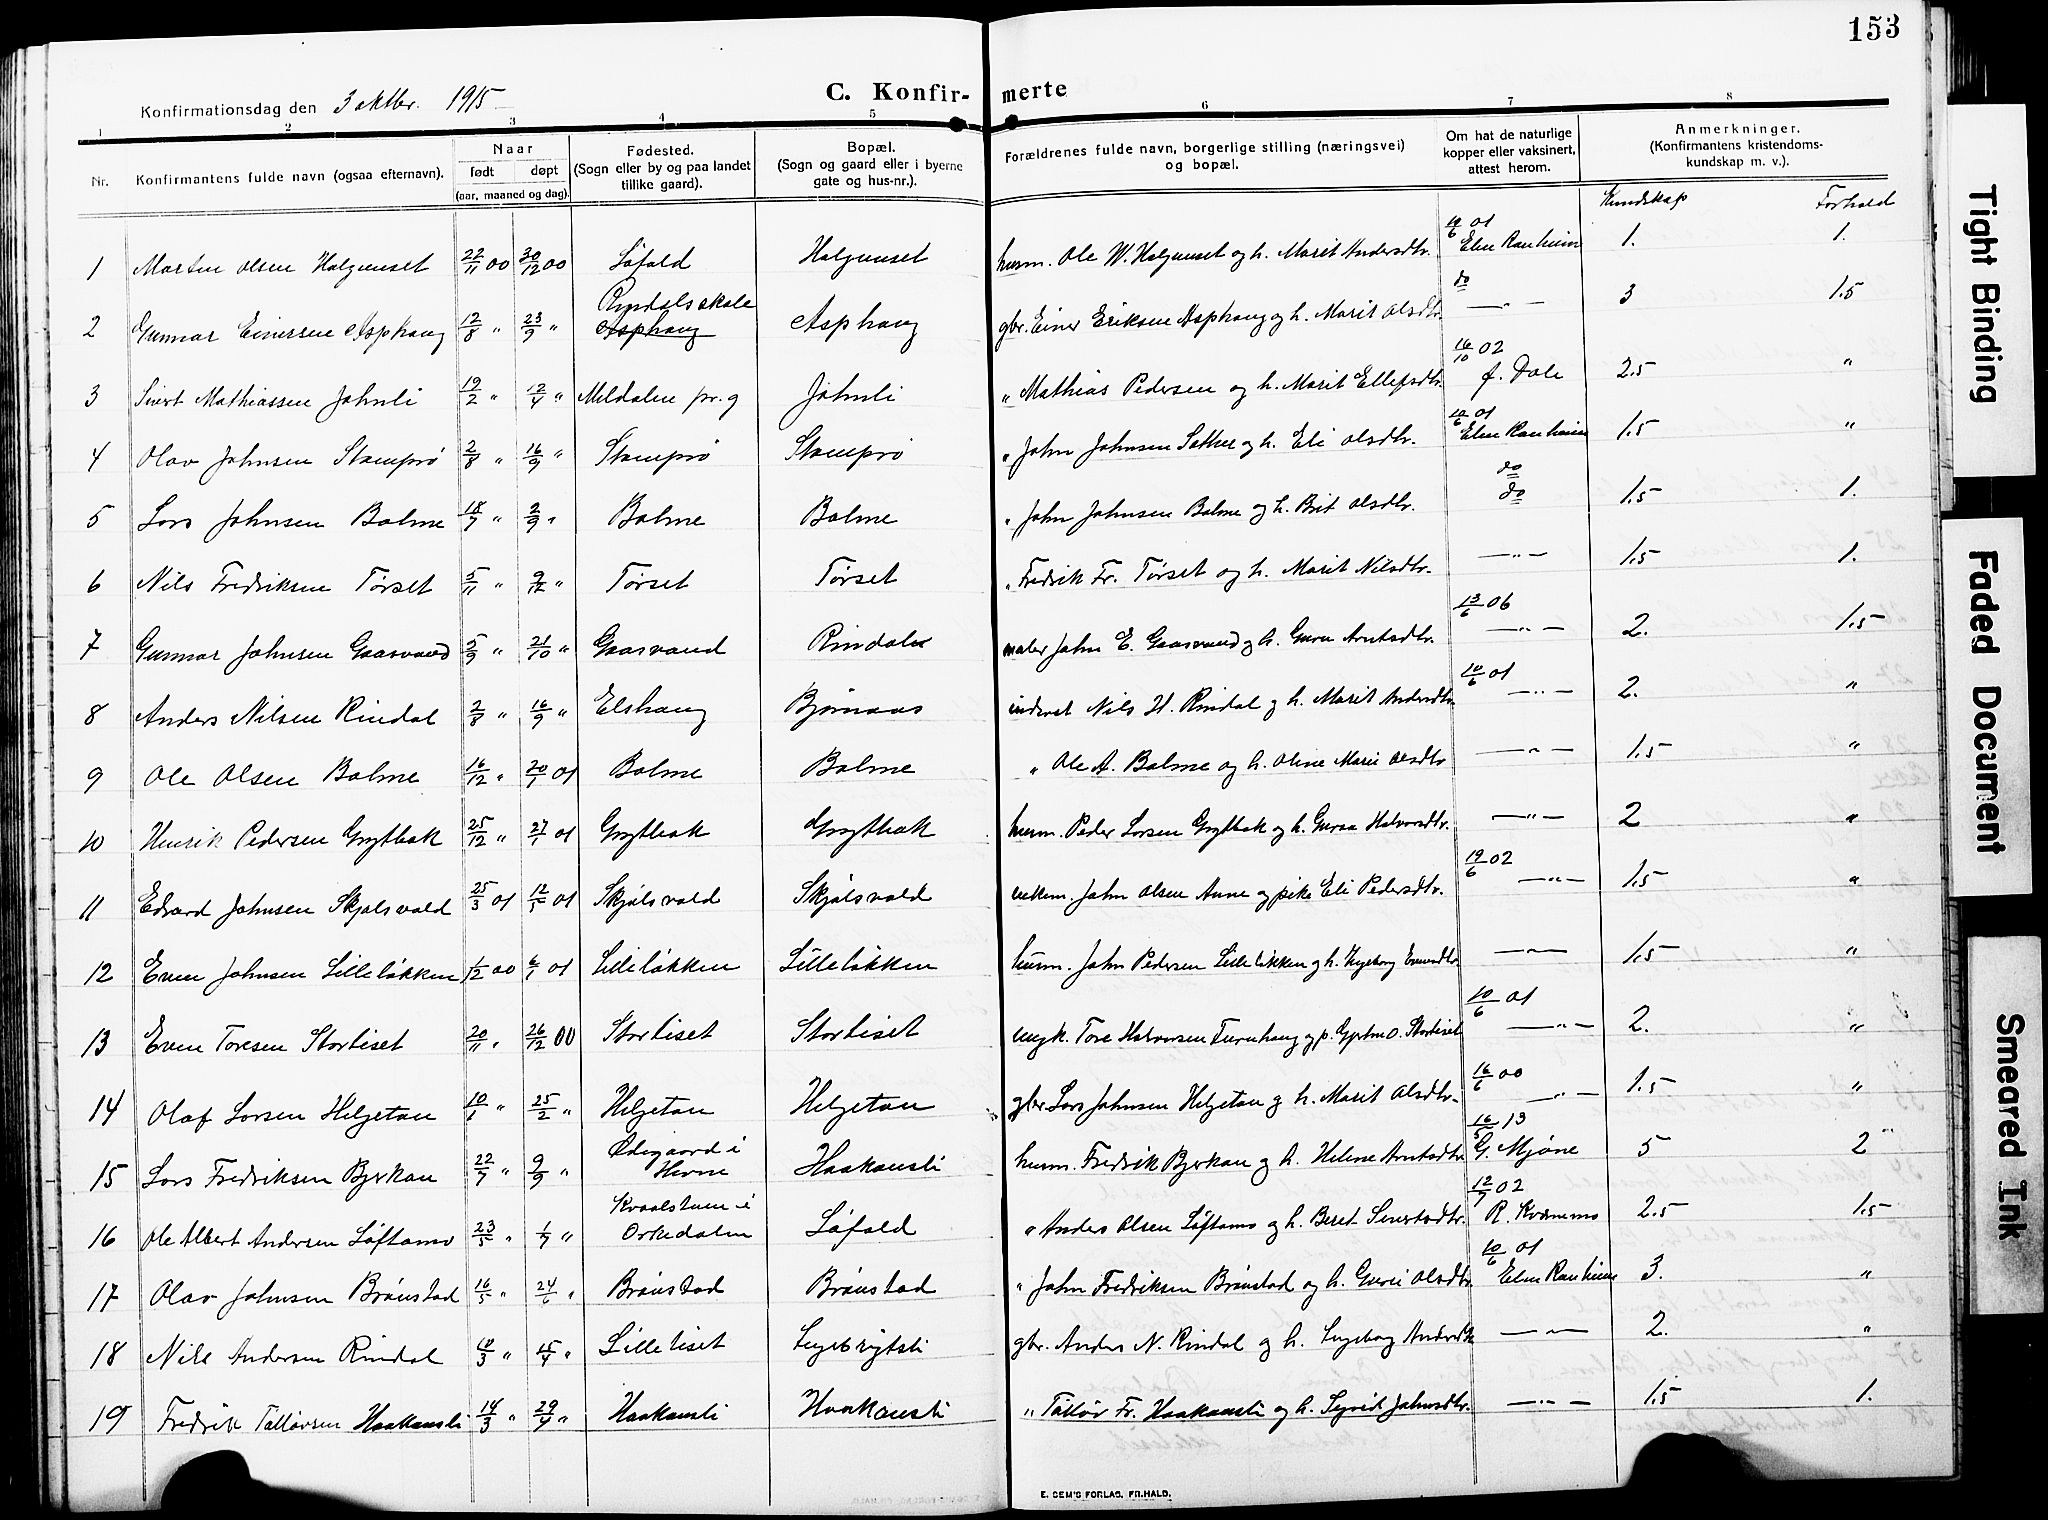 153
C. Konfir- merte
Konfirmationsdag den 3 oktbr. 1915
1 2 3 4 5 6 7 8
Nr. Konfirmantens fulde navn (ogsaa efternavn). Naar født døpt (aar, maaned og dag). Fødested. (Sogn eller by og paa landet tillike gaard). Bopæl. (Sogn og gaard eller i byerne gate og hus-nr.). Forældrenes fulde navn, borgerlige stilling (næringsvei) og bopæl. Om hat de naturlige kopper eller vaksinert, attest herom. Anmerkninger. (Konfirmantens kristendoms- kundskap m. v.).
Kundskap Forhold
1 Morten Olsen Halgunset 22/11 00 30/12 00 Løfald Halgunset husm. Ole W. Halgunset og h. Marit Andersdtr. 10/6 01 Elen Ranheim 1. 1.
2 Gunnar Einersen Asphaug 12/8 " 23/9 " Rindalsskole Asphaug Asphaug gbr. Einer Eriksen Asphaug og h. Marit Olsdtr. do —"— 3 1.5
3 Sivert Mathiassen Jahnli 19/2 " 12/4 " Meldalen pr.g Jahnli " Mathias Pedersen og h. Marit Ellefsdtr. 16/10 02 f. Dale 2.5 "
4 Olav Johnsen Stomprø 2/8 " 16/9 " Stomprø Stomprø " John Johnsen Sæther og h. Eli Olsdtr. 10/6 01 Elen Ranheim 1.5 "
5 Lars Johnsen Bolme 18/7 " 2/9 " Bolme Bolme " John Johnsen Bolme og h. Brit Olsdtr. do do 1.5 1.
6 Nils Fredriksen Tørset 5/11 " 9/12 " Tørset Tørset " Fredrik Fr. Tørset og h. Marit Nilsdtr. —"— 1.5 1.
7 Gunnar Johnsen Gaasvand 5/9 " 21/10 " Gaasvand Rindalen maler John E. Gaasvand og h. Guru Arntsdtr. 13/6 06 —"— 2. 1.5
8 Anders Nilsen Rindal 2/8 " 16/9 " Elshaug Bjørnaas inderst Nils H. Rindal og h. Marit Andersdtr. 10/6 01 —"— 2. "
9 Ole Olsen Bolme 16/12 " 20/1 01 Bolme Bolme " Ole A. Bolme og h. Oline Marie Olsdtr —"— 1.5 "
10 Henrik Pedersen Grytbak 25/12 " 27/1 01 Grytbak Grytbak husm. Peder Larsen Grytbak og h. Guroa Halvorsdtr. —"— 2 "
11 Edvard Johnsen Skjølsvold 25/3 01 12/5 01 Skjølsvold Skjølsvold enkem. John Olsen Aune og pike Eli Pedersdtr. 19/6 02 —"— 1.5 "
12 Even Johnsen Lilleløkken 1/12 00 6/1 01 Lilleløkken Lilleløkken husm. John Pedersen Lilleløkken og h. Ingeborg Evensdtr —"— 1.5 "
13 Even Toresen Storliset 20/11 " 26/12 00 Storliset Storliset ungk. Tore Halvorsen og p. O. Storliset 10/6 01 —"— 2. "
14 Olaf Larsen Helgetun 10/1 " 25/2 " Helgetun Helgetun gbr. Lars Johnsen Helgetun og h. Marit Olsdtr. 16/6 00 —"— 1.5 "
15 Lars Fredriksen Byrkan 22/7 " 9/9 " Ødegaard i Hevne Haakonsli husm. Fredrik Byrkan og h. Helene Arntsdtr 16/5 13 G. Mjøne 5 2
16 Ole Albert Andersen Løftamo 23/5 " 1/7 " Kvaalstuen i Orkedalen Løfald " Anders Olsen Løftamo og h. Beret Sivertsdtr. 12/7 02 R. Kvammo 2.5 1.5
17 Olav Johnsen Brønstad 16/5 " 24/6 " Brønstad Brønstad " John Fredriksen Brønstad og h. Guri Olsdtr 10/6 01 Elen Ranheim 3. "
18 Nils Andersen Rindal 10/3 " 15/4 " Lilleliset Ingebrigtsli gbr. Anders N. Rindal og h. Ingeborg Andersdtr —"— 2. "
19 Fredrik Tøllørsen Haakonsli 14/3 " 29/4 " Haakonsli Haakonsli " Tøllør Fr. Haakonsli og h. Sigrid Johnsdtr. —"— 1.5 1.
E. SEM'S FORLAG, FR.HALD.
Tight Binding
Faded Document
Smeared Ink